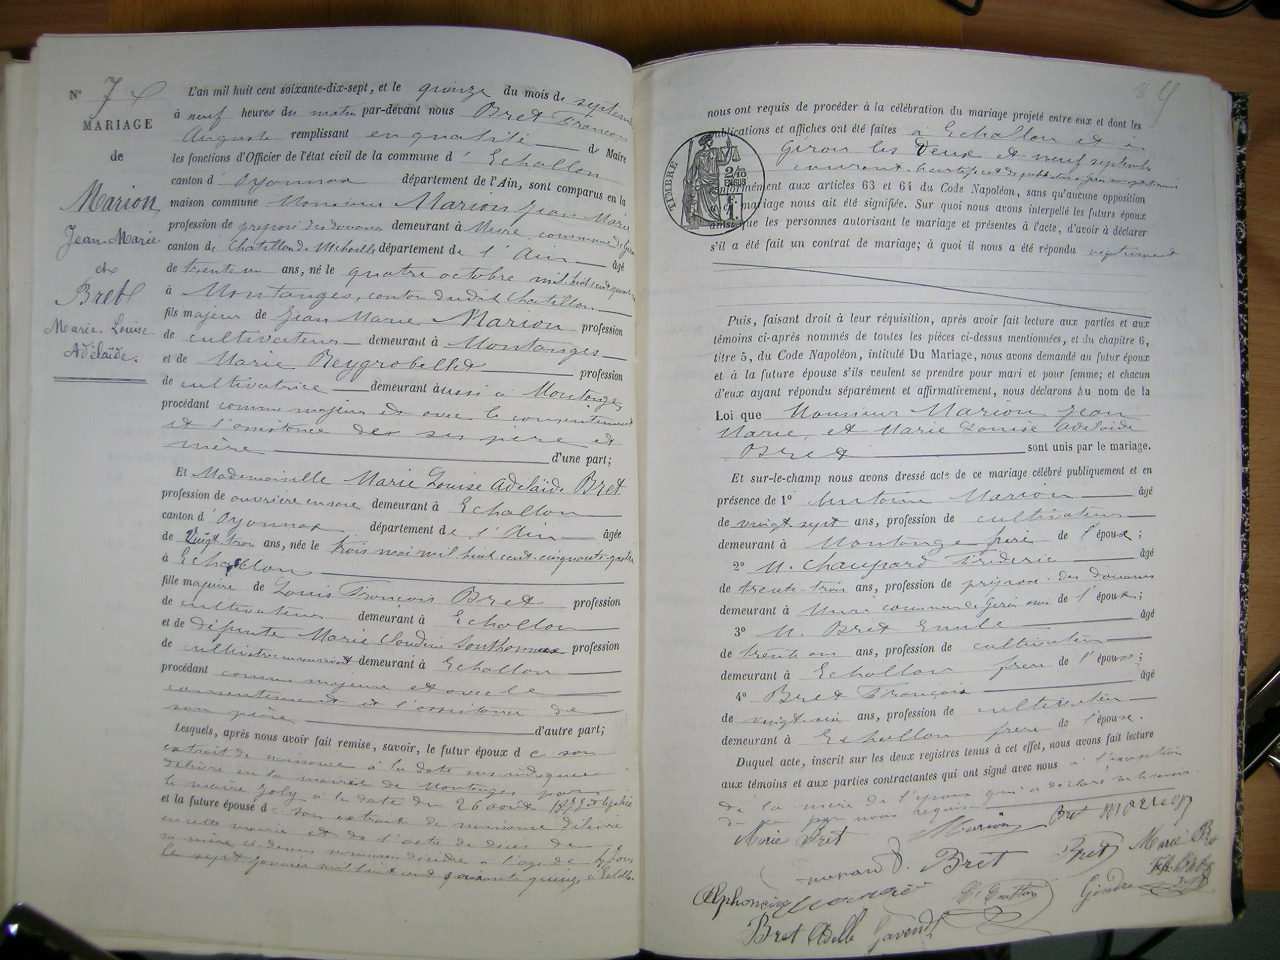 N° 7
MARIAGE
de
Marion
Jean Marie
et
Bret
Marie Louise
Adélaïde.
L'an mil huit cent soixante-dix-sept, et le quinze du mois de septembre
à neuf heures du matin par-devant nous Bret François
Auguste remplissant en qualité de Maire
les fonctions d'Officier de l'état civil de la commune d' Echallon
canton d' Oyonnax département de l'Ain, sont comparus en la
maison commune Monsieur Marion Jean Marie
profession de préposé des douanes demeurant à commune de
canton de Chatillon de Michaille département de l'Ain âgé
de trente un ans, né le quatre octobre mil huit cent
à Montanges, canton dudit Chatillon
fils majeur de Jean Marie Marion profession
de cultivateur demeurant à Montanges
et de Marie Reygrobellet profession
de cultivatrice demeurant à aussi à Montanges
procédant comme majeur et avec le consentement
et l'assistance de ses père et
mère d'une part;
Et Mademoiselle Marie Louise Adélaïde Bret
profession de ouvrière en soie demeurant à Echallon
canton d' Oyonnax département de l'Ain âgée
de vingt trois ans, née le trois mai mil huit cent cinquante-quatre
à Echallon
fille majeure de Louis François Bret profession
de cultivateur demeurant à Echallon
et de défunte Marie Claudine Sonthonnax profession
de cultivatrice demeurant à Echallon
procédant comme majeure et avec le
consentement et l'assistance de
son père d'autre part;
Lesquels, après nous avoir fait remise, savoir, le futur époux de son
extrait de naissance à la date sus indiquée
délivré en la mairie de Montanges par
le maire Joly à la date du 26 août 1877
et la future épouse de son extrait de naissance délivré
en cette mairie et de l'acte de décès de
sa mère décédée à l'age de
le sept janvier mil huit cent soixante quinze à Echallon
nous ont requis de procéder à la célébration du mariage projeté entre eux et dont les
publications et affiches ont été faites à Echallon et à
Giron les deux et neuf septembre
courant
conformément aux articles 63 et 64 du Code Napoléon, sans qu'aucune opposition
mariage nous ait été signifiée. Sur quoi nous avons interpellé les futurs époux
ainsi que les personnes autorisant le mariage et présentes à l'acte, d'avoir à déclarer
s'il a été fait un contrat de mariage; à quoi il nous a été répondu négativement
TIMBRE
2/10
EN SUS
1 F.
Puis, faisant droit à leur réquisition, après avoir fait lecture aux parties et aux
témoins ci-après nommés de toutes les pièces ci-dessus mentionnées, et du chapitre 6,
titre 5, du Code Napoléon, intitulé Du Mariage, nous avons demandé au futur époux
et à la future épouse s'ils veulent se prendre pour mari et pour femme; et chacun
d'eux ayant répondu séparément et affirmativement, nous déclarons au nom de la
Loi que Monsieur Marion Jean
Marie, et Marie Louise Adélaïde
Bret sont unis par le mariage.
Et sur-le-champ nous avons dressé acte de ce mariage célébré publiquement et en
présence de 1° Antoine Marion âgé
de vingt sept ans, profession de cultivateur
demeurant à Montange frère de l'époux;
2° M. Chaupard Frédéric âgé
de trente trois ans, profession de préposé des douanes
demeurant à commune de Giron de l'époux;
3° M. Bret Emile âgé
de trente un ans, profession de cultivateur
demeurant à Echallon frère de l'épouse;
4° Bret François âgé
de vingt six ans, profession de cultivateur
demeurant à Echallon frère de l'épouse.
Duquel acte, inscrit sur les deux registres tenus à cet effet, nous avons fait lecture
aux témoins et aux parties contractantes qui ont signé avec nous à l'exception
de la mère de l'époux qui a déclaré ne le savoir
de ce par nous requis
Marie Bret Marion Bret Marion
Bret Bret Marie Bret
Alphonsine Gindre
Bret Adelle Gavend